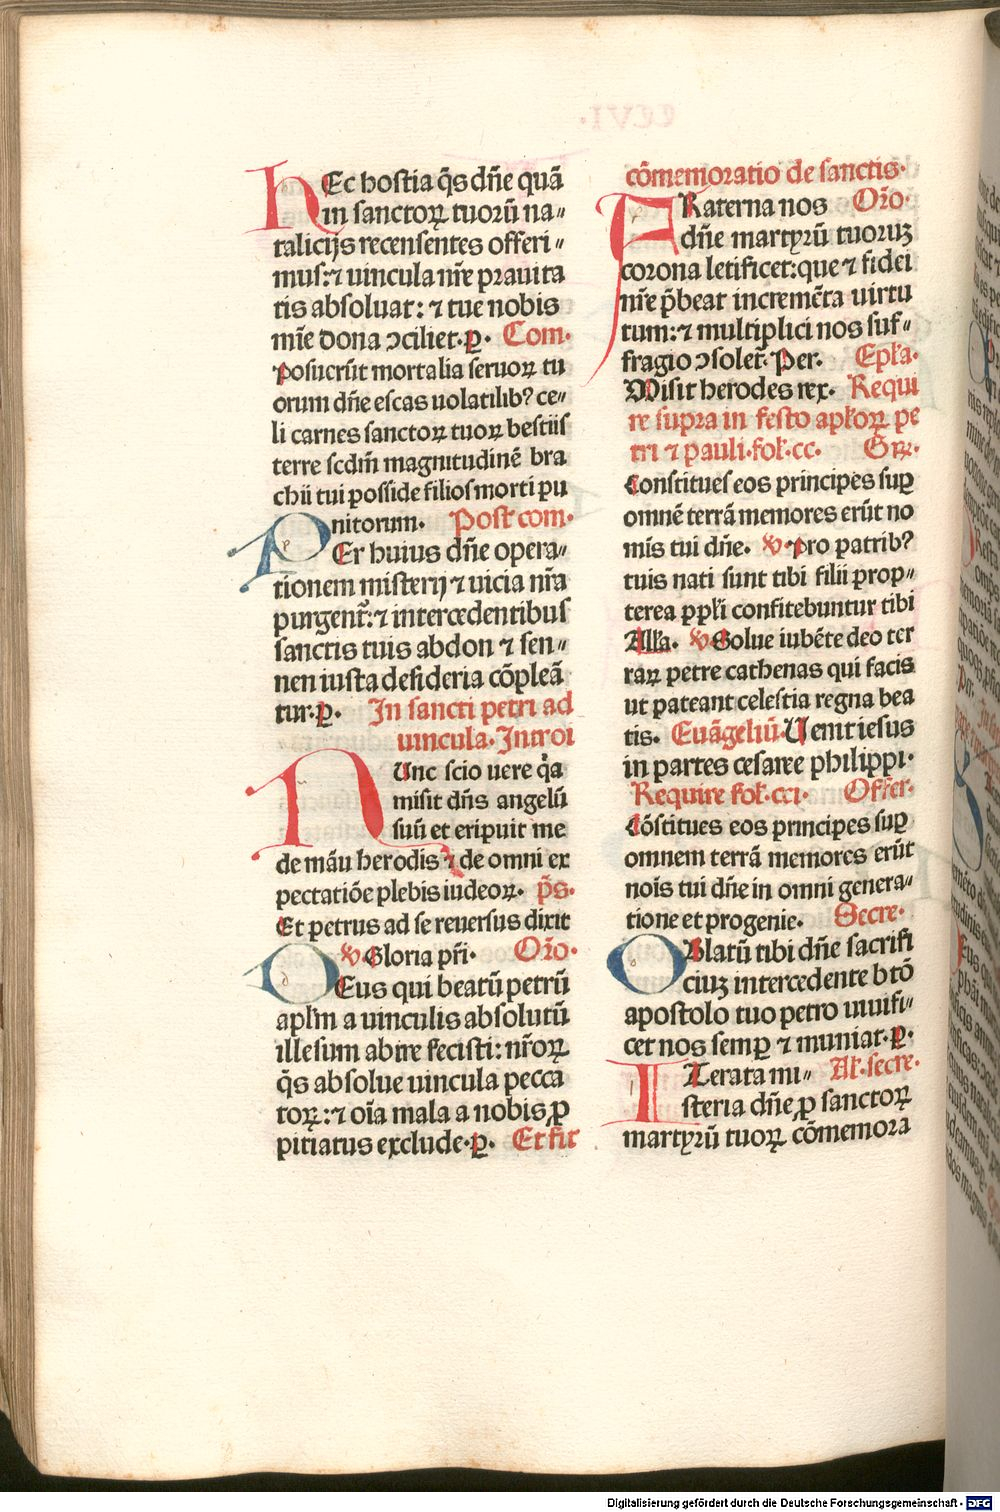 hEc hostia q̄s dn̄e quā
in sanctoꝝ tuoꝝ na⸗
talicijs recensentes offeri⸗
mus:⁊ uincula nr̄e prauita
tis absoluat: ⁊ tue nobis
mīe dona ↄciliet.p̲. Com.
Posuerūt mortalia seruoꝝ tu
orum dn̄e escas uolatilibꝰ ce⸗
li carnes sanctoꝝ tuoꝝ bestiis
terre scdm̄ magnitudinē bra
chii tui posside filios morti pu
nitorum. Post com.
PEr huius dn̄e opera⸗
tionem misterij ⁊ uicia nr̄a
purgent̄:⁊ intercedentibus
sanctis tuis abdon ⁊ sen⸗
nen iusta desideria cōpleā
tur.p̲. In sancti petri ad
uincula. Introi
NUnc scio uere q̄a
misit dn̄s angelū
suū et eripuit me
de māu herodis ⁊ de omni ex
pectatiōe plebis iudeoꝝ. p̄s.
Et petrus ad se reuersus dixit
℣ Gloria pr̄i. Or̄o.
DEus qui beatū petrū
apl̄m a uinculis absolutū
illesum abire fecisti: nr̄oꝝ
q̄s absolue uincula pecca
toꝝ:⁊ oīa mala a nobis ꝓ
pitiatus exclude.p̲. Et fit
cōmemoratio de sanctis.
FRaterna nos Or̄o.
dn̄e martyrū tuoruz
corona letificet:que ⁊ fidei
nr̄e p̄beat incremēta uirtu
tum:⁊ multiplici nos suf⸗
fragio ↄsolet̄. Per. Epl̄a.
Misit herodes rex. Requi
re supra in festo apl̄oꝝ pe
tri ⁊ pauli.fol̄.cc. Gr̄.
Constitues eos principes sup̲
omnē terrā memores erūt no
mīs tui dn̄e. ℣ Pro patribꝰ
tuis nati sunt tibi filii prop⸗
terea ppl̄i confitebuntur tibi
All̄a. ℣ Solue iubēte deo ter
raꝝ petre cathenas qui facis
ut pateant celestia regna bea
tis. Euāgeliū. Uenit iesus
in partes cesaree philippi.
Require fol̄.cci. Offer.
Cōstitues eos principes sup̲
omnem terrā memores erūt
noīs tui dn̄e in omni genera⸗
tione et progenie. Secre.
OBlatū tibi dn̄e sacrifi
ciuz intercedente btō
apostolo tuo petro uiuifi⸗
cet nos semp̲ ⁊ muniat.p̲.
ITerata mi⸗ Al̄.secre.
steria dn̄e ꝓ sanctoꝝ
martyrū tuoꝝ cōmemora
Digitalisierung gefördert durch die Deutsche Forschungsgemeinschaft - DFG